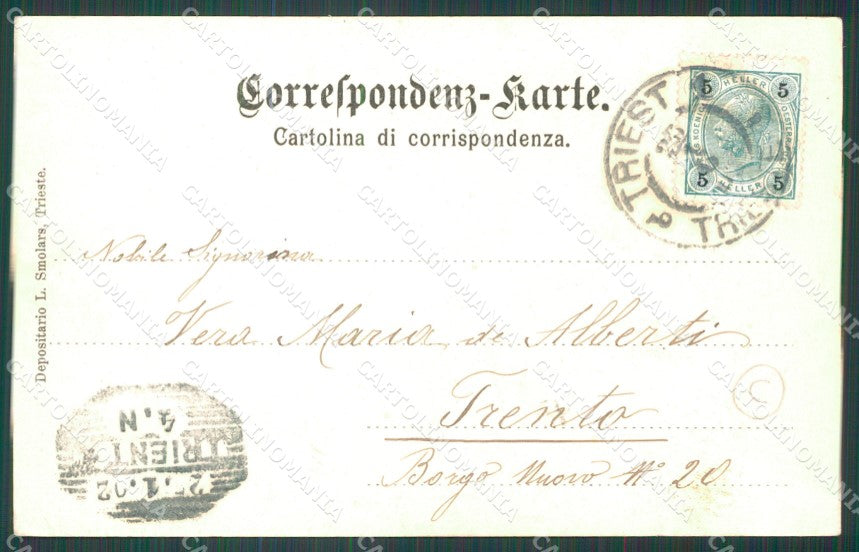 Correspondenz-Karte.
Cartolina di corrispondenza.
5 HELLER 5
5 HELLER 5
TRIEST
TRIE
Nobile Signorina
Vera Maria de Alberti
Trento
Borgo Nuovo Nº 20
Depositario L. Smolars, Trieste.
TRIENT
4.N
CARTOLINOMANIA